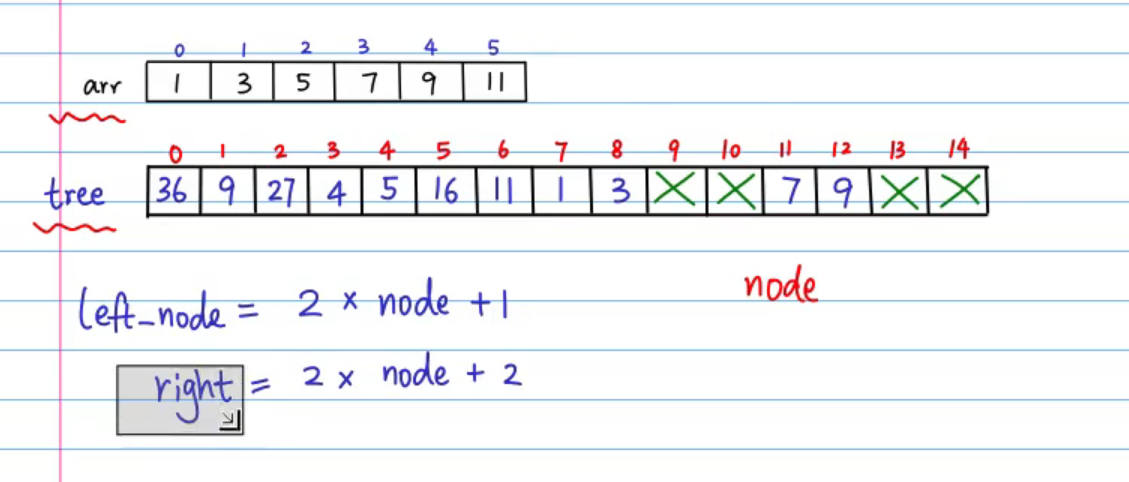 0 1 2 3 4 5
arr 1 3 5 7 9 11
0 1 2 3 4 5 6 7 8 9 10 11 12 13 14
tree 36 9 27 4 5 16 11 1 3 X X 7 9 X X
node
left_node = 2 × node + 1
right = 2 × node + 2